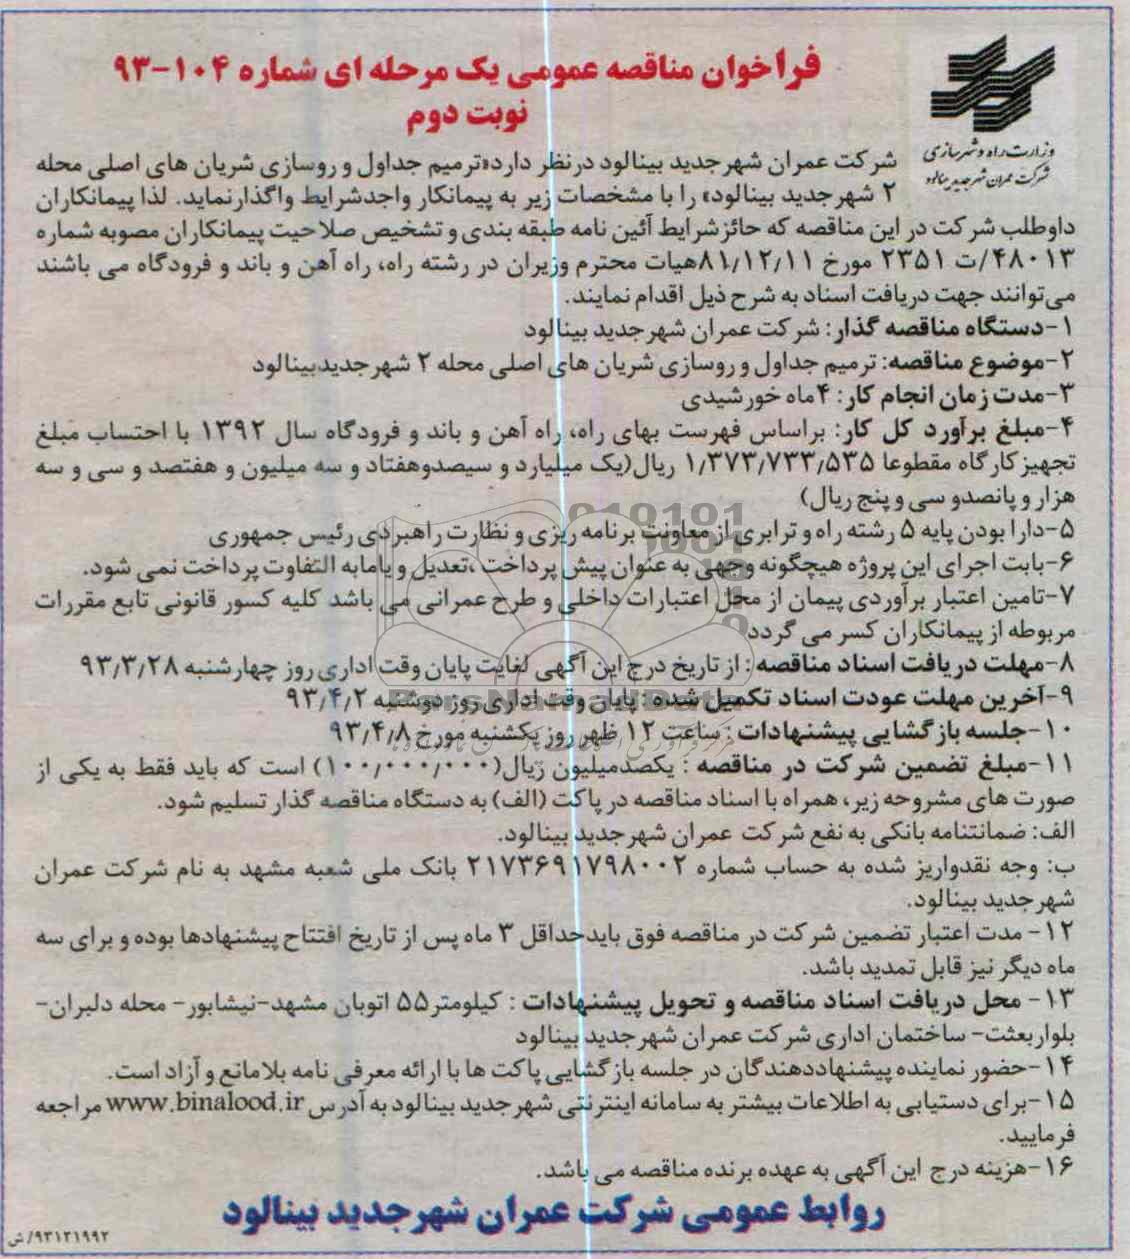 فراخوان مناقصه عمومی یک مرحله ای شماره ۱۰۴-۹۳
نوبت دوم
وزارت راه و شهرسازی
شرکت عمران شهر جدید بینالود
شرکت عمران شهرجدید بینالود درنظر دارد«ترمیم جداول و روسازی شریان های اصلی محله
۲ شهرجدید بینالود» را با مشخصات زیر به پیمانکار واجدشرایط واگذارنماید. لذا پیمانکاران
داوطلب شرکت در این مناقصه که حائزشرایط آئین نامه طبقه بندی و تشخیص صلاحیت پیمانکاران مصوبه شماره
۴۸۰۱۳/ت ۲۳۵۱ مورخ ۸۱/۱۲/۱۱هیات محترم وزیران در رشته راه، راه آهن و باند و فرودگاه می باشند
می‌توانند جهت دریافت اسناد به شرح ذیل اقدام نمایند.
۱-دستگاه مناقصه گذار: شرکت عمران شهرجدید بینالود
۲-موضوع مناقصه: ترمیم جداول و روسازی شریان های اصلی محله ۲ شهرجدیدبینالود
۳-مدت زمان انجام کار: ۴ماه خورشیدی
۴-مبلغ برآورد کل کار: براساس فهرست بهای راه، راه آهن و باند و فرودگاه سال ۱۳۹۲ با احتساب مبلغ
تجهیزکارگاه مقطوعا ۱/۳۷۳/۷۳۳/۵۳۵ ریال(یک میلیارد و سیصدوهفتاد و سه میلیون و هفتصد و سی و سه
هزار و پانصدو سی و پنج ریال)
۵-دارا بودن پایه ۵ رشته راه و ترابری از معاونت برنامه ریزی و نظارت راهبردی رئیس جمهوری
۶-بابت اجرای این پروژه هیچگونه وجهی به عنوان پیش پرداخت ،تعدیل و یامابه التفاوت پرداخت نمی شود.
۷-تامین اعتبار برآوردی پیمان از محل اعتبارات داخلی و طرح عمرانی می باشد کلیه کسور قانونی تابع مقررات
مربوطه از پیمانکاران کسر می گردد
۸-مهلت دریافت اسناد مناقصه: از تاریخ درج این آگهی لغایت پایان وقت اداری روز چهارشنبه ۹۳/۳/۲۸
۹-آخرین مهلت عودت اسناد تکمیل شده: پایان وقت اداری روز دوشنبه ۹۳/۴/۲
۱۰-جلسه بازگشایی پیشنهادات: ساعت ۱۲ ظهر روز یکشنبه مورخ ۹۳/۴/۸
۱۱-مبلغ تضمین شرکت در مناقصه : یکصدمیلیون ریال(۱۰۰/۰۰۰/۰۰۰) است که باید فقط به یکی از
صورت های مشروحه زیر، همراه با اسناد مناقصه در پاکت (الف) به دستگاه مناقصه گذار تسلیم شود.
الف: ضمانتنامه بانکی به نفع شرکت عمران شهرجدید بینالود.
ب: وجه نقدواریز شده به حساب شماره ۲۱۷۳۶۹۱۷۹۸۰۰۲ بانک ملی شعبه مشهد به نام شرکت عمران
شهرجدید بینالود.
۱۲- مدت اعتبار تضمین شرکت در مناقصه فوق بایدحداقل ۳ ماه پس از تاریخ افتتاح پیشنهادها بوده و برای سه
ماه دیگر نیز قابل تمدید باشد.
۱۳- محل دریافت اسناد مناقصه و تحویل پیشنهادات : کیلومتر۵۵ اتوبان مشهد-نیشابور- محله دلبران-
بلواربعثت- ساختمان اداری شرکت عمران شهرجدید بینالود
۱۴-حضور نماینده پیشنهاددهندگان در جلسه بازگشایی پاکت ها با ارائه معرفی نامه بلامانع و آزاد است.
۱۵-برای دستیابی به اطلاعات بیشتر به سامانه اینترنتی شهرجدید بینالود به آدرس www.binalood.ir مراجعه
فرمایید.
۱۶-هزینه درج این آگهی به عهده برنده مناقصه می باشد.
روابط عمومی شرکت عمران شهرجدید بینالود
۹۳۱۲۱۹۹۲/ش